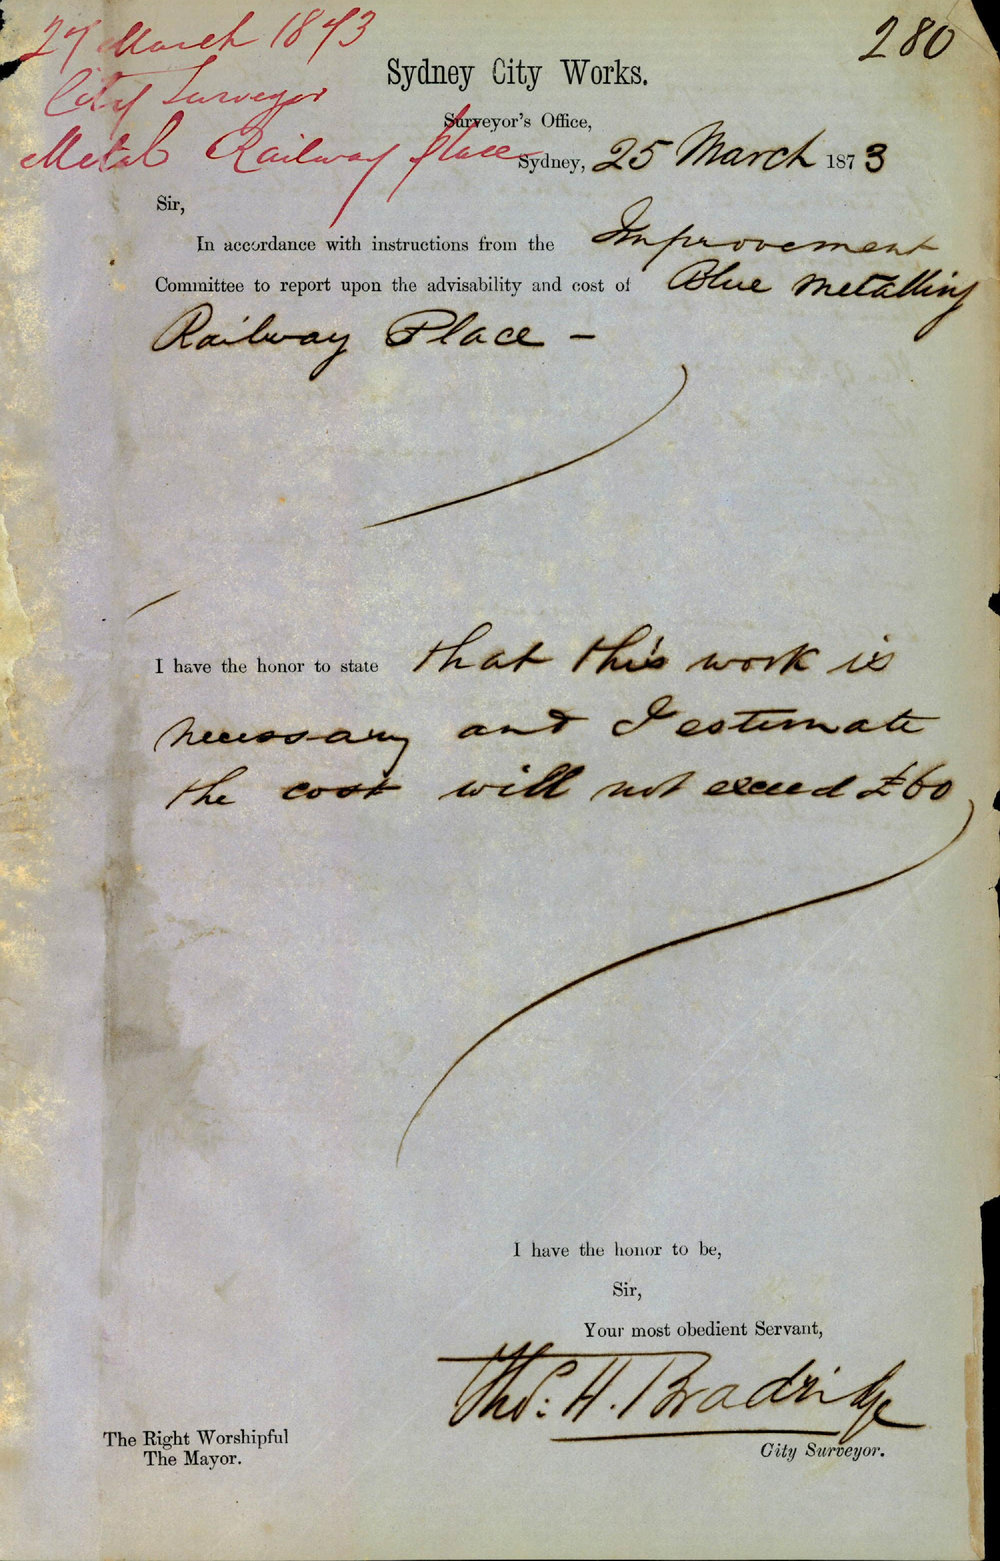 27 March 1873
City Surveyor
Metal Railway place
280
Sydney City Works.
Surveyor's Office,
Sydney, 25 March 1873
Sir,
In accordance with instructions from the Improvement
Committee to report upon the advisability and cost of Blue metalling
Railway Place -
I have the honor to state that this work is
necessary and I estimate
the cost will not exceed £60
I have the honor to be,
Sir,
Your most obedient Servant,
Thos: H. Bradridge
City Surveyor.
The Right Worshipful
The Mayor.